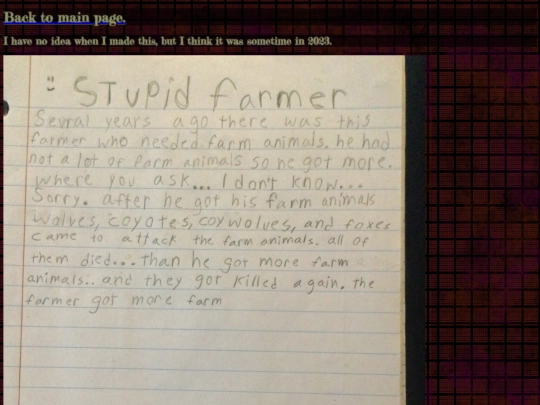 Back to main page.
I have no idea when I made this, but I think it was sometime in 2023.
" Stupid farmer
Sevral years ago there was this
farmer who needed farm animals. he had
not a lot of farm animals so he got more.
where you ask... I don't know...
Sorry. after he got his farm animals
wolves, coyotes, coywolves, and foxes
came to attack the farm animals. all of
them died... than he got more farm
animals.. and they got killed again. the
farmer got more farm